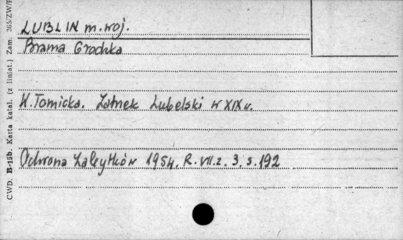 LUBLIN m. woj.
Brama Grodzka
K. Tomicka. Zamek Lubelski w XIX w.
Ochrona Zabytków 1954. R. VII. z. 3. s. 192
CWD. B-15b. Karta katal. (z liniat.) Zam.